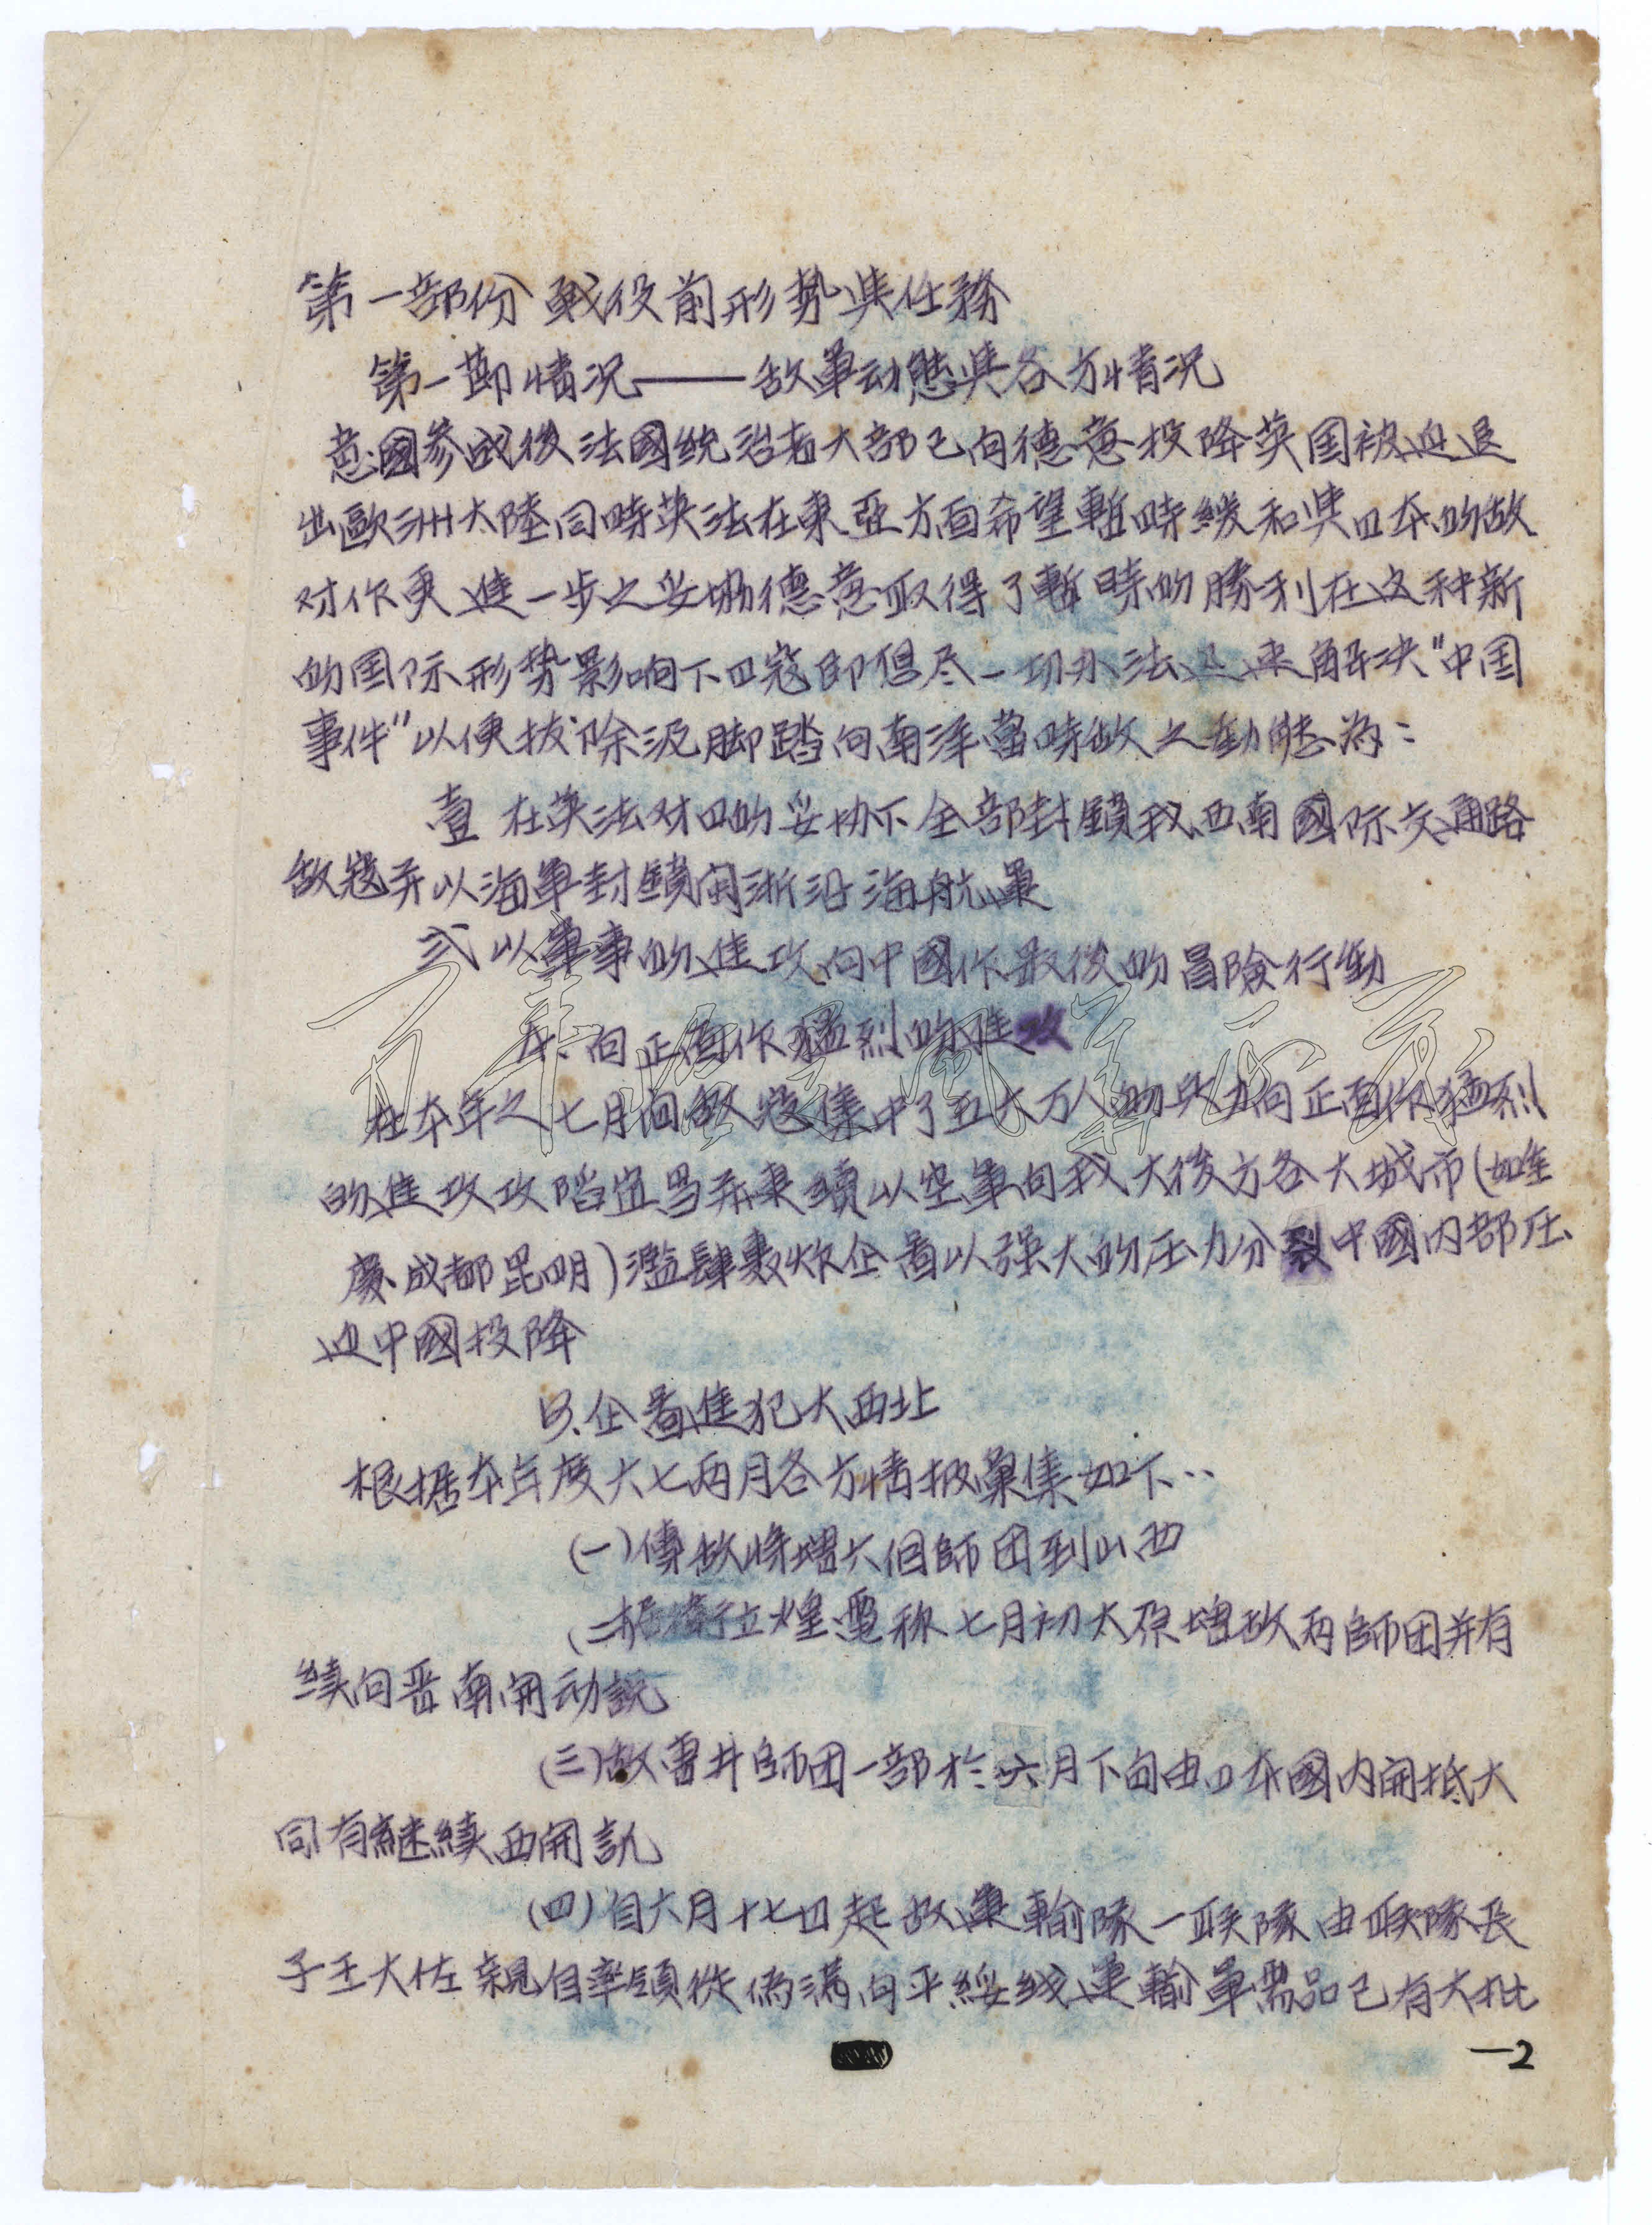 第一部份 戰役前形势與任務
第一節情况——敌軍动態與各方情况
意國參战後法國統治者大部已向德意投降英国被迫退
出歐洲大陸同時英法在東亞方面希望暫時緩和與日本的敵
对作更進一步之妥协德意取得了暫時的勝利在这种新
的国际形势影响下日寇即但尽一切办法迅速解决"中国
事件"以便拔除泥脚踏向南洋當時敌之動態為:
壹 在英法对日的妥协下全部封鎖我西南國际交通路
敌寇并以海軍封鎖閩浙沿海航運
弍 以軍事的進攻向中國作最後的冒險行動
A. 向正面作猛烈的進攻
在本年之七月间敵寇集中了五六万人的兵力向正面作猛烈
的進攻攻陷宜昌并連續以空軍向我大後方各大城市(如重
慶.成都昆明)濫肆轰炸企畵以强大的压力分裂中國内部压
迫中國投降
B.企畵進犯大西北
根据本年度六七两月各方情报彙集如下..
(一)傳敌将增六個師团到山西
(二据衛立煌電称七月初太原增敌两師团并有
续向晋南開动説
(三)敌雷井師團一部於六月下旬由日本國内開抵大
同有継續西開訊
(四)自六月十七日起敌運輸隊一联隊由联隊長
子玉大佐親自率領從偽滿向平綏线運輸軍需品已有大批
—2